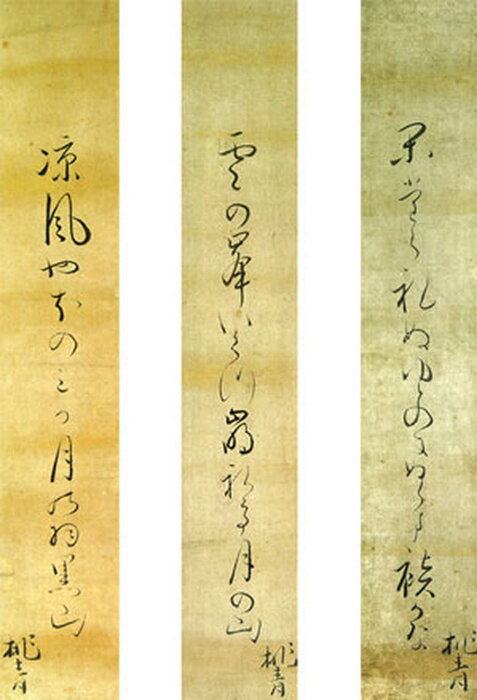 かたられぬゆとのにぬらす袂かな
桃青
雲の峯いくつ崩れて月の山
桃青
凉風やほの三か月の羽黒山
桃青